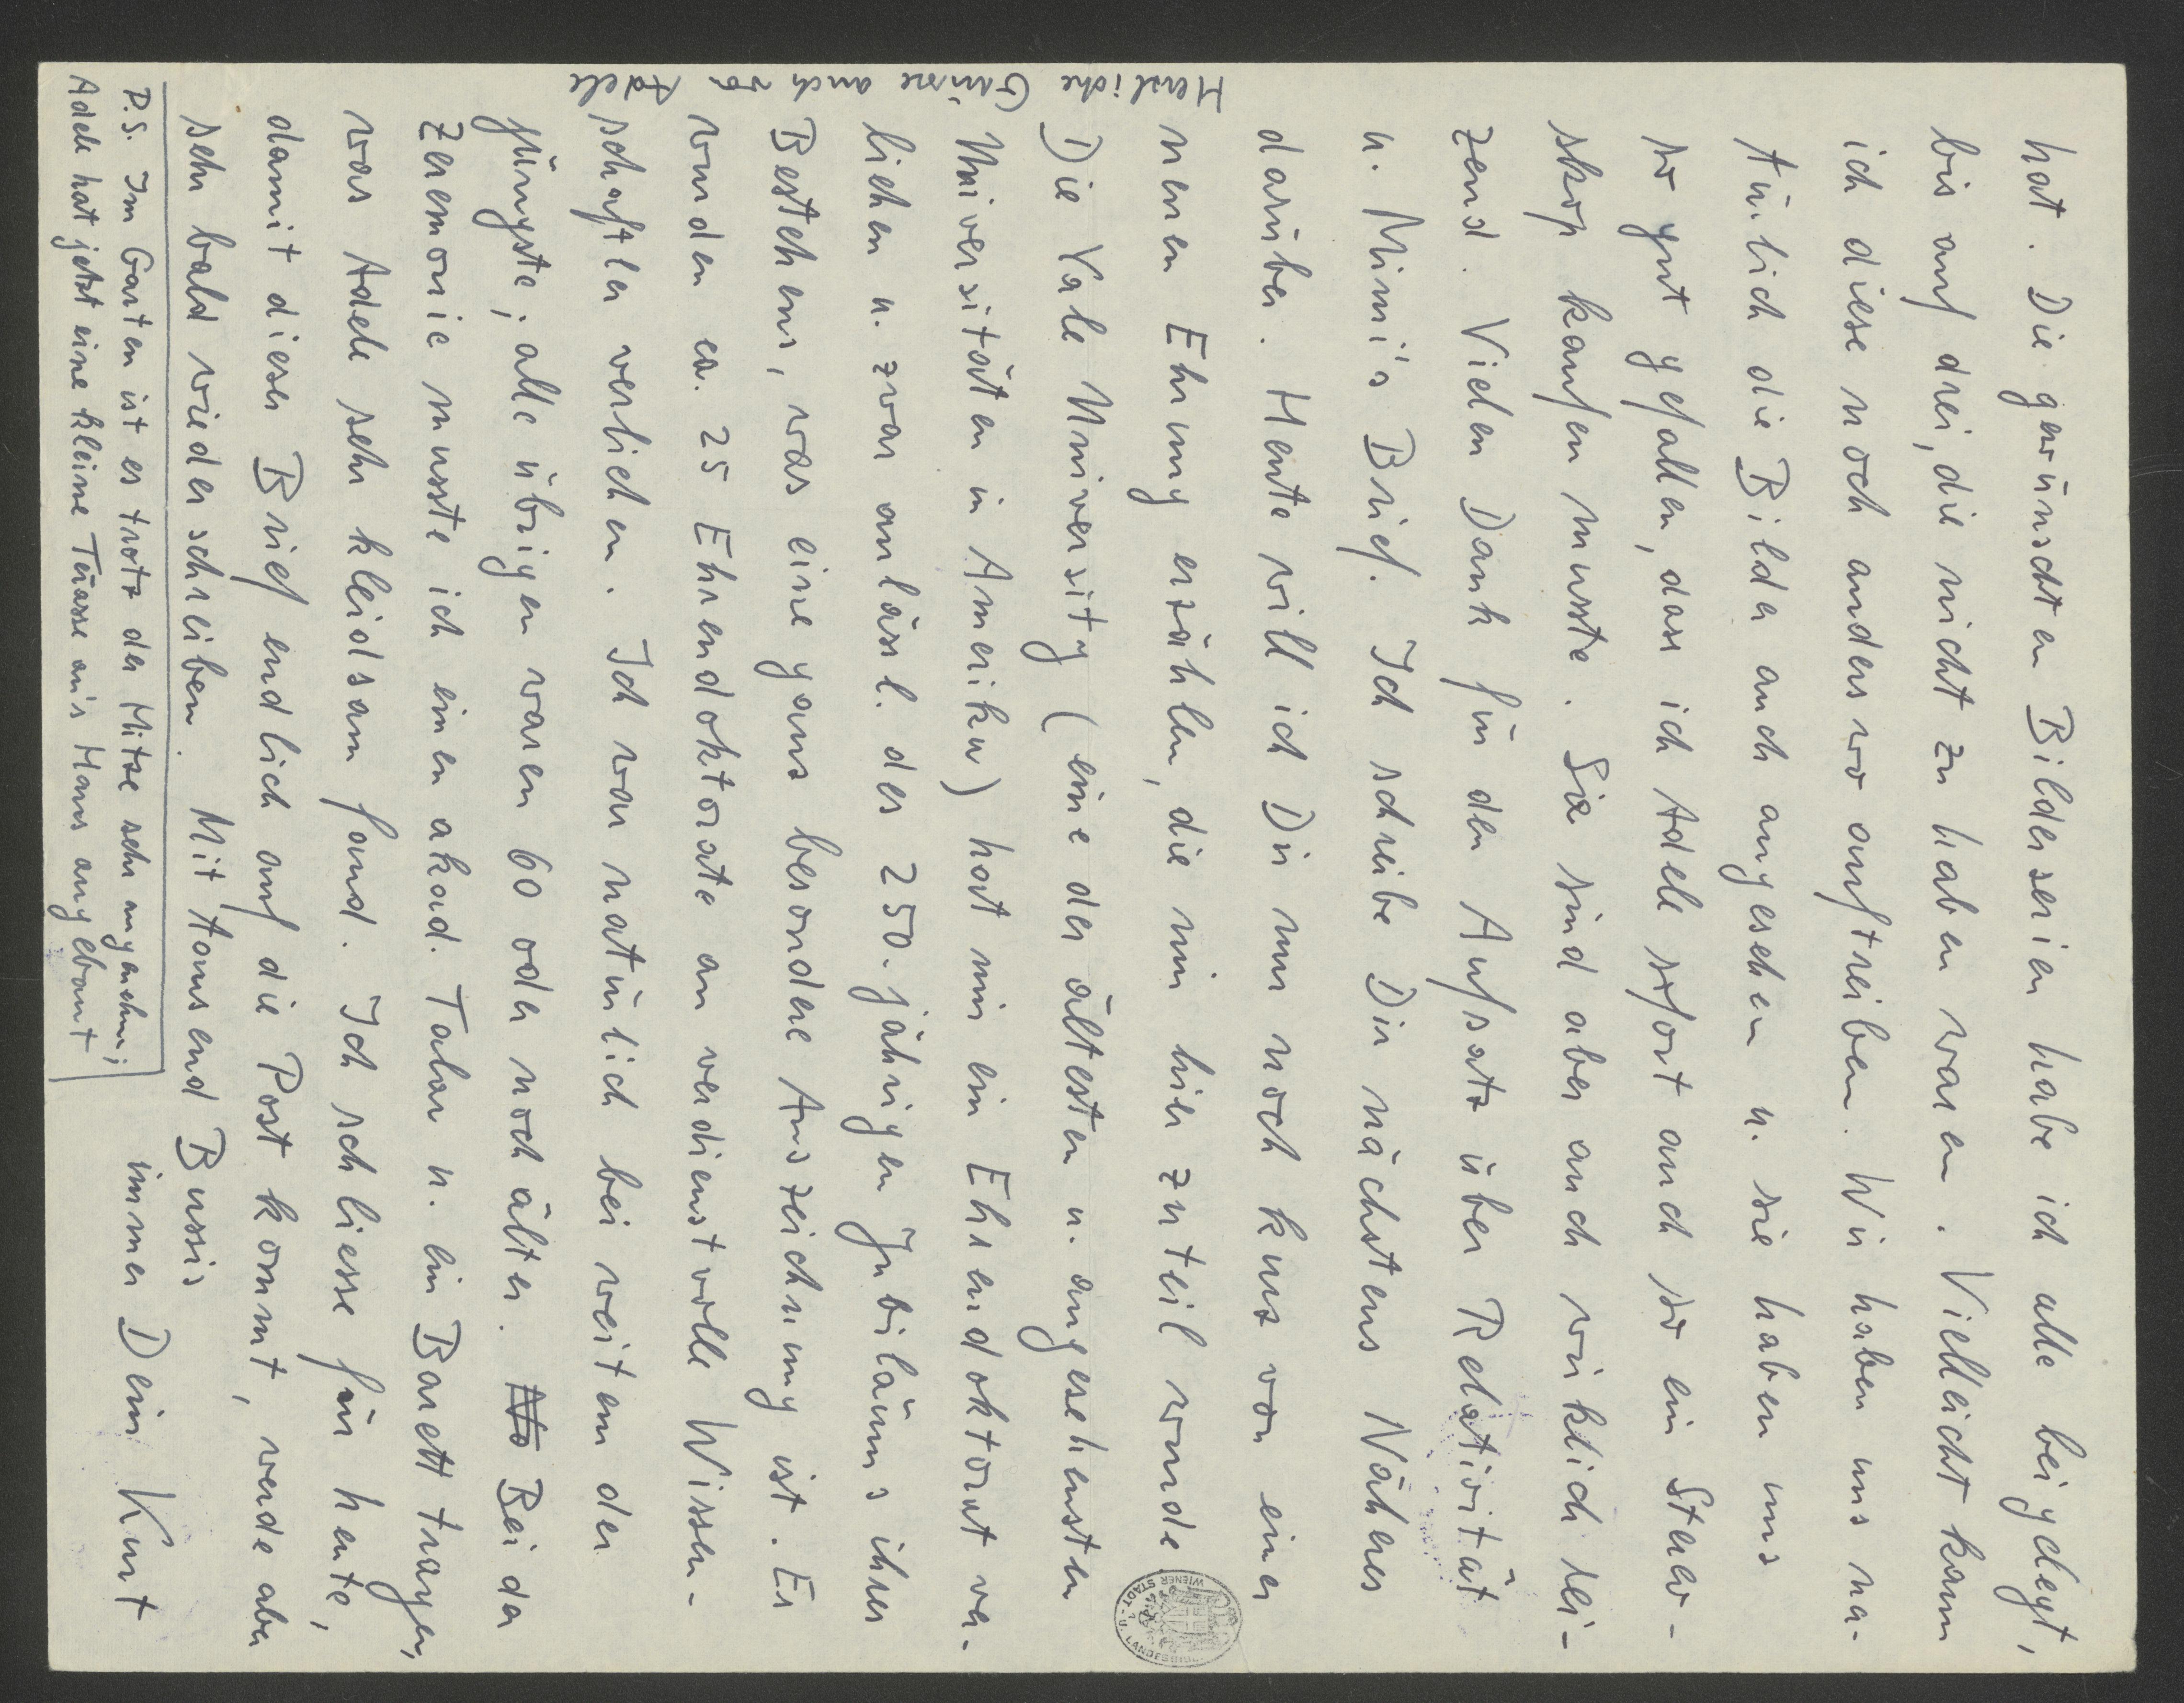 hat. Die gewünschten Bilderserien habe ich alle beigelegt,
bis auf drei, die nicht zu haben waren. Vielleicht kann
ich diese noch anderswo auftreiben. Wir haben uns na-
türlich die Bilder auch angesehen u. sie haben uns
so gut gefallen, dass ich Adele sofort auch so ein Stereo-
skop kaufen musste. Sie sind aber auch wirklich rei-
zend. Vielen Dank für den Aufsatz über Relativität
u. Mimi's Brief. Ich schreibe Dir nächstens Näheres
darüber. Heute will ich Dir nur noch kurz von einer
neuen Ehrung erzählen, die mir hier zuteil wurde
Die Yale University (eine der ältesten u. angesehensten
Universitäten in Amerika) hat mir ein Ehrendoktorat ver-
liehen u. zwar anlässl. des 250. jährigen Jubiläums ihres
Bestehens, was eine ganz besondere Auszeichnung ist. Es
wurden ca. 25 Ehrendoktorate an verdienstvolle Wissen-
schaftler verliehen. Ich war natürlich bei weitem der
jüngste; alle übrigen waren 60 oder noch älter. Bei der
Zeremonie musste ich einen akad. Talar u. ein Barett tragen,
was Adele sehr kleidsam fand. Ich schliesse für heute,
damit dieser Brief endlich auf die Post kommt, werde aber
sehr bald wieder schreiben. Mit tausend Bussis
immer Dein Kurt
P.S. Im Garten ist es trotz der Hitze sehr angenehm;
Adele hat jetzt eine kleine Terasse an's Haus angebaut
Herzliche Grüsse auch von Adele
WIENER STADT- u. LANDESBIBLIOTHEK